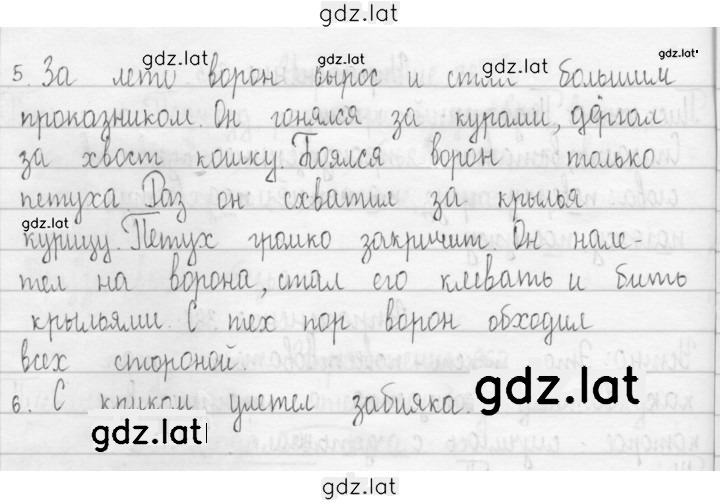 gdz.lat
gdz.lat gdz.lat gdz.lat
5. За лето ворон вырос и стал большим
проказником. Он гонялся за курами, дёргал
за хвост кошку. Боялся ворон только
петуха. Раз он схватил за крылья
gdz.lat
курицу. Петух громко закричит. Он нале-
тел на ворона, стал его клевать и бить
крыльями. С тех пор ворон обходил
всех стороной.
6. С криком улетел забияка. gdz.lat
gdz.lat
gdz.lat